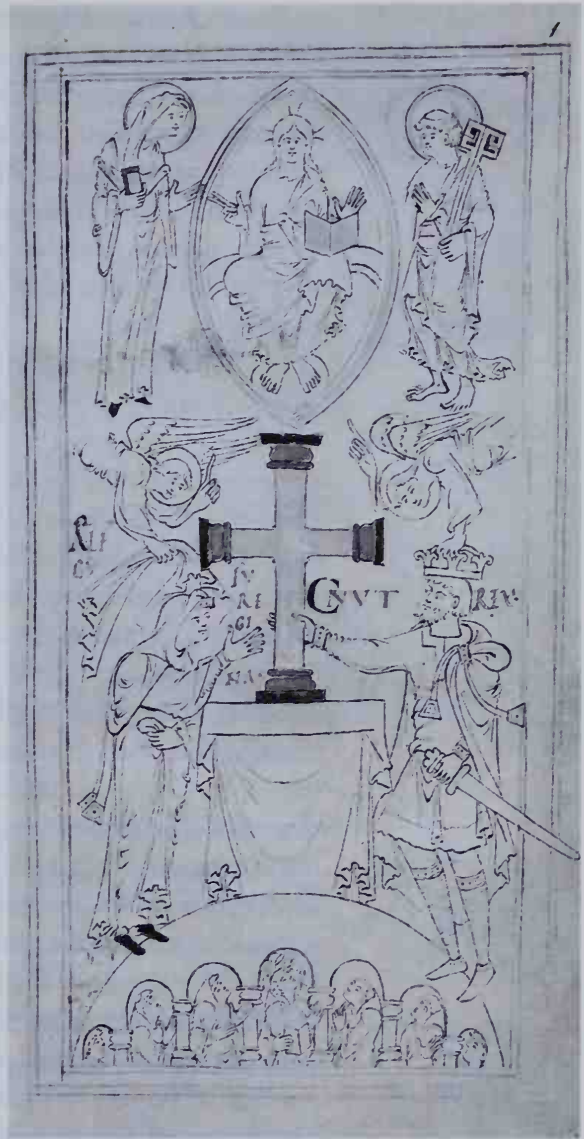 1
ÆLF
GY
FV
RE
GI
NA·
CNVT REX·